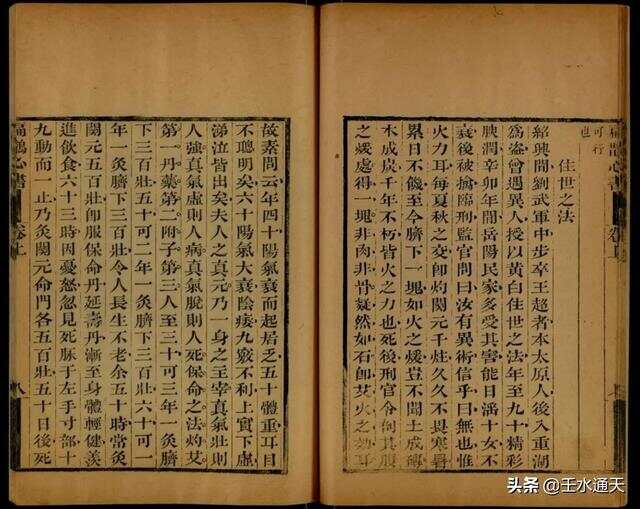 可行
也
住世之法
紹興間劉武軍中步卒王超者本太原人後入重湖
為盜曾遇異人授以黃白住世之法年至九十精彩
腴潤辛卯年間岳陽民家多受其害能日淫十女不
衰後被擒臨刑監官問曰汝有異術信乎曰無也惟
火力耳每夏秋之交即灼關元千炷久久不畏寒暑
累日不饑至今臍下一塊如火之煖豈不聞土成磚
木成炭千年不朽皆火之力也死後刑官令剖其腹
之煖處得一塊非肉非骨凝然如石即艾火之効耳
故素問云年四十陽氣衰而起居乏五十體重耳目
不聰明矣六十陽氣大衰陰痿九竅不利上實下虛
涕泣皆出矣夫人之真元乃一身之主宰真氣壯則
人強真氣虛則人病真氣脫則人死保命之法灼艾
第一丹藥第二附子第三人至三十可三年一灸臍
下三百壯五十可二年一灸臍下三百壯六十可一
年一灸臍下三百壯令人長生不老余五十時常灸
關元五百壯即服保命丹延壽丹漸至身體輕健羨
進飲食六十三時因憂怒忽見死脈于左手寸部十
九動而一止乃灸關元命門各五百壯五十日後死
扁鵲心書 卷上 八
头条 @壬水通天